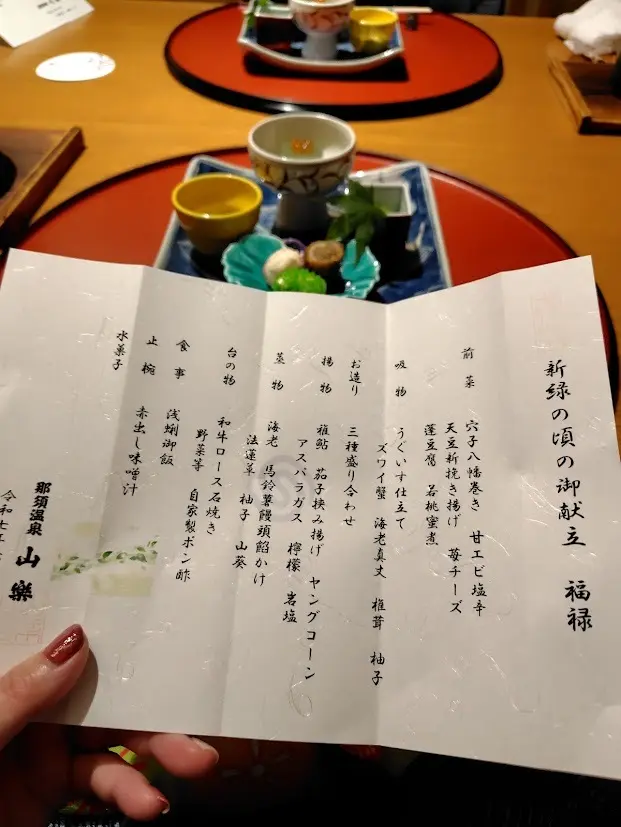 新緑の頃の御献立　福禄
前菜　穴子八幡巻き　甘エビ塩辛
天豆新挽き揚げ　苺チーズ
蓬豆腐　若桃蜜煮
吸物　うぐいす仕立て
ズワイ蟹　海老真丈　椎茸　柚子
お造り　三種盛り合わせ
揚物　稚鮎　茄子挟み揚げ　ヤングコーン
アスパラガス　檸檬　岩塩
蒸物　海老　馬鈴薯饅頭餡かけ
法蓮草　柚子　山葵
台の物　和牛ロース石焼き
野菜等　自家製ポン酢
食事　浅蜊御飯
止椀　赤出し味噌汁
水菓子
那須温泉　山樂
令和七年